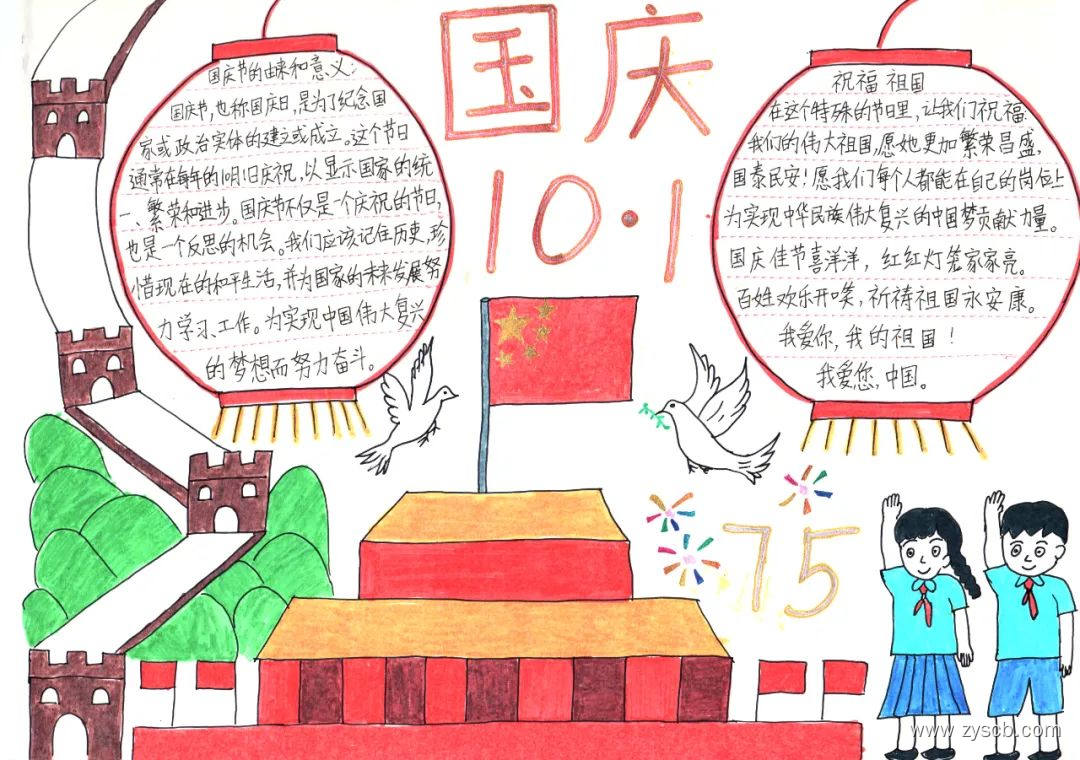 国庆
10·1
国庆节的由来和意义:
国庆节,也称国庆日,是为了纪念国
家或政治实体的建立或成立。这个节日
通常在每年的10月1日庆祝,以显示国家的统
一、繁荣和进步。国庆节不仅是一个庆祝的节日,
也是一个反思的机会。我们应该记住历史,珍
惜现在的和平生活,并为国家的未来发展努
力学习、工作。为实现中国伟大复兴
的梦想而努力奋斗。
祝福祖国
在这个特殊的节日里,让我们祝福:
我们的伟大祖国,愿她更加繁荣昌盛,
国泰民安!愿我们每个人都能在自己的岗位上
为实现中华民族伟大复兴的中国梦贡献力量。
国庆佳节喜洋洋,红红灯笼家家亮。
百姓欢乐开口笑,祈祷祖国永安康。
我爱你,我的祖国!
我爱您,中国。
75
www.zyscb.com